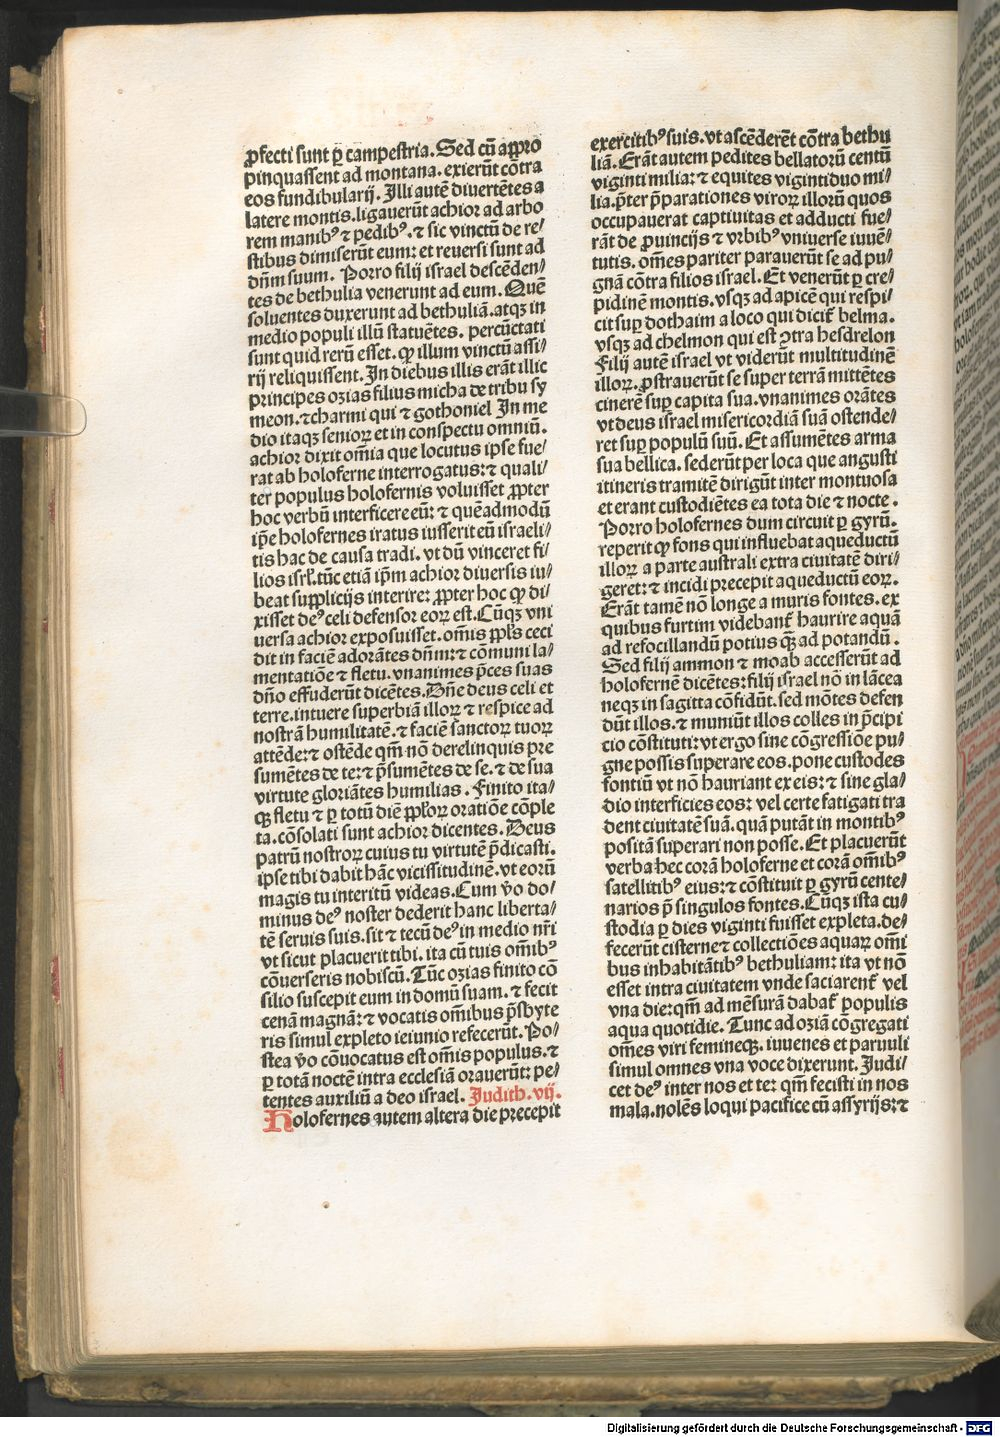 ꝓfecti sunt ꝑ campestria. Sed cū appro
pinquassent ad montana. exierūt cōtra
eos fundibularij. Illi autē diuertētes a
latere montis. ligauerūt achior ad arbo
rem manibꝰ ⁊ pedibꝰ. ⁊ sic vinctū de re/
stibus dimiserūt eum: et reuersi sunt ad
dñm suum. Porro filij israel descēden/
tes de bethulia venerunt ad eum. Quē
soluentes duxerunt ad bethuliā. atqꝫ in
medio populi illū statuētes. percūctati
sunt quid rerū esset. ꝙ illum vinctū assi/
rij reliquissent. In diebus illis erāt illic
principes ozias filius micha de tribu sy
meon. ⁊ charmi qui ⁊ gothoniel In me
dio itaqꝫ senioꝝ et in conspectu omniū.
achior dixit om̄ia que locutus ipse fue/
rat ab holoferne interrogatus: ⁊ quali/
ter populus holofernis voluisset ꝓpter
hoc verbū interficere eū: ⁊ quēadmodū
ip̄e holofernes iratus iusserit eū israeli/
tis hac de causa tradi. vt dū vinceret fi/
lios isrl̓. tūc etiā ip̄m achior diuersis iu/
beat supplicijs interire: ꝓpter hoc ꝙ di/
xisset deꝰ celi defensor eoꝝ est. Cūqꝫ vni
uersa achior exposuisset. om̄is ppl̓s ceci
dit in faciē adorātes dñm: ⁊ cōmuni la/
mentatiōe ⁊ fletu. vnanimes p̄ces suas
dn̄o effuderūt dicētes. Dn̄e deus celi et
terre. intuere superbiā illoꝝ ⁊ respice ad
nostrā humilitatē. ⁊ faciē sanctoꝝ tuoꝝ
attēde: ⁊ ostēde qm̄ nō derelinquis pre
sumētes de te: ⁊ p̄sumētes de se. ⁊ de sua
virtute gloriātes humilias. Finito ita/
qꝫ fletu ⁊ ꝑ totū diē ppl̓oꝝ oratiōe cōple
ta. cōsolati sunt achior dicentes. Deus
patrū nostroꝝ cuius tu virtutē p̄dicasti.
ipse tibi dabit hāc vicissitudinē. vt eorū
magis tu interitū videas. Cum v̄o do/
minus deꝰ noster dederit hanc liberta/
tē seruis suis. sit ⁊ tecū deꝰ in medio nr̄i
vt sicut placuerit tibi. ita cū tuis om̄ibꝰ
cōuerseris nobiscū. Tūc ozias finito cō
silio suscepit eum in domū suam. ⁊ fecit
cenā magnā: ⁊ vocatis om̄ibus p̄sbyte
ris simul expleto ieiunio refecerūt. Po/
stea v̄o cōuocatus est om̄is populus. ⁊
ꝑ totā noctē intra ecclesiā orauerūt: pe/
tentes auxiliū a deo israel. Judith. vij.
Holofernes autem altera die precepit
exercitibꝰ suis. vt ascēderēt cōtra bethu
liā. Erāt autem pedites bellatorū centū
viginti milia: ⁊ equites vigintiduo mi/
lia. p̄ter p̄parationes viroꝝ illorū quos
occupauerat captiuitas et adducti fue/
rāt de ꝓuincijs ⁊ vrbibꝰ vniuerse iuuē/
tutis. om̄es pariter parauerūt se ad pu/
gnā cōtra filios israel. Et venerūt ꝑ cre/
pidinē montis. vsqꝫ ad apicē qui respi/
cit suꝑ dothaim a loco qui dicit᷑ belma.
vsqꝫ ad chelmon qui est ꝯtra hesdrelon
Filij autē israel vt viderūt multitudinē
illoꝝ. ꝓstrauerūt se super terrā mittētes
cinerē suꝑ capita sua. vnanimes orātes
vt deus israel misericordiā suā ostende/
ret suꝑ populū suū. Et assumētes arma
sua bellica. sederūt per loca que angusti
itineris tramitē dirigūt inter montuosa
et erant custodiētes ea tota die ⁊ nocte.
Porro holofernes dum circuit ꝑ gyrū.
reperit ꝙ fons qui influebat aqueductū
illoꝝ a parte australi extra ciuitatē diri/
geret: ⁊ incidi precepit aqueductū eoꝝ.
Erāt tamē nō longe a muris fontes. ex
quibus furtim videbant᷑ haurire aquā
ad refocillandū potius qꝫ̄ ad potandū.
Sed filij ammon ⁊ moab accesserūt ad
holofernē dicētes: filij israel nō in lācea
neqꝫ in sagitta cōfidūt. sed mōtes defen
dūt illos. ⁊ muniūt illos colles in p̄cipi
cio cōstituti: vt ergo sine cōgressiōe pu/
gne possis superare eos. pone custodes
fontiū vt nō hauriant ex eis: ⁊ sine gla/
dio interficies eos: vel certe fatigati tra
dent ciuitatē suā. quā putāt in montibꝰ
positā superari non posse. Et placuerūt
verba hec corā holoferne et corā om̄ibꝰ
satellitibꝰ eius: ⁊ cōstituit ꝑ gyrū cente/
narios p̄ singulos fontes. Cūqꝫ ista cu/
stodia ꝑ dies viginti fuisset expleta. de/
fecerūt cisterne ⁊ collectiōes aquaꝝ om̄i
bus inhabitātibꝰ bethuliam: ita vt nō
esset intra ciuitatem vnde saciarent᷑ vel
vna die: qm̄ ad mēsurā dabat᷑ populis
aqua quotidie. Tunc ad oziā cōgregati
om̄es viri femineqꝫ. iuuenes et paruuli
simul omnes vna voce dixerunt. Judi/
cet deꝰ inter nos et te: qm̄ fecisti in nos
mala. nolēs loqui pacifice cū assyrijs: ⁊
Digitalisierung gefördert durch die Deutsche Forschungsgemeinschaft - DFG